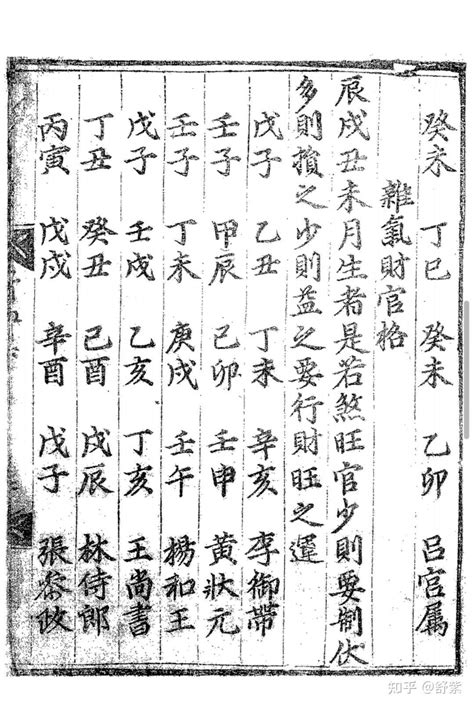 癸未 丁巳 癸未 乙卯 呂官属
雜氣財官格
辰戌丑未月生者是若煞旺官少則要制伏
多則損之少則益之要行財旺之運
戊子 乙丑 丁未 辛亥 李御帶
壬子 甲辰 己卯 壬申 黃狀元
壬子 丁未 庚戌 壬午 楊和王
戊子 壬戌 乙亥 丁亥 王尚書
丁丑 癸丑 己酉 戊辰 林侍郎
丙寅 戊戌 辛酉 戊子 張叅政
知乎 @舒紫